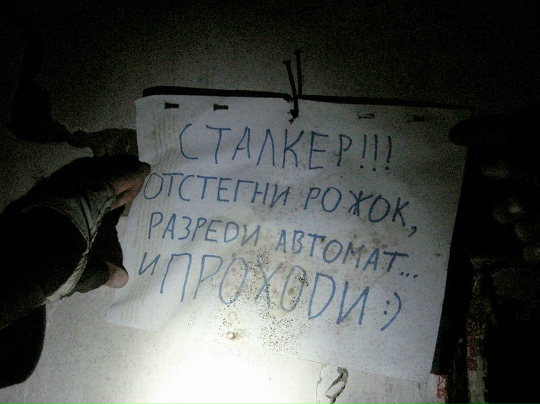 СТАЛКЕР!!!
ОТСТЕГНИ РОЖОК,
РАЗРЕДИ АВТОМАТ...
И ПРОХОДИ :)